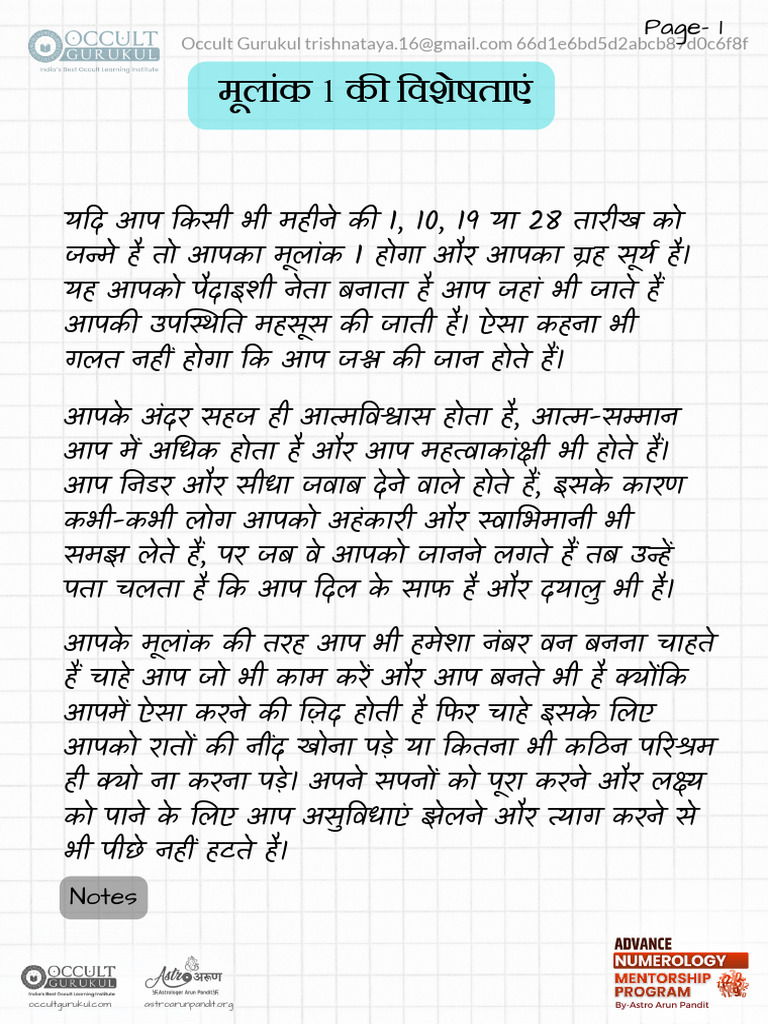 Page- 1
OCCULT
GURUKUL
India's Best Occult Learning Institute
Occult Gurukul trishnataya.16@gmail.com 66d1e6bd5d2abcb87d0c6f8f
मूलांक 1 की विशेषताएं
यदि आप किसी भी महीने की 1, 10, 19 या 28 तारीख को
जन्मे है तो आपका मूलांक 1 होगा और आपका ग्रह सूर्य है।
यह आपको पैदाइशी नेता बनाता है आप जहां भी जाते हैं
आपकी उपस्थिति महसूस की जाती है। ऐसा कहना भी
गलत नहीं होगा कि आप जश्न की जान होते हैं।
आपके अंदर सहज ही आत्मविश्वास होता है, आत्म-सम्मान
आप में अधिक होता है और आप महत्वाकांक्षी भी होते हैं।
आप निडर और सीधा जवाब देने वाले होते हैं, इसके कारण
कभी-कभी लोग आपको अहंकारी और स्वाभिमानी भी
समझ लेते हैं, पर जब वे आपको जानने लगते हैं तब उन्हें
पता चलता है कि आप दिल के साफ है और दयालु भी है।
आपके मूलांक की तरह आप भी हमेशा नंबर वन बनना चाहते
हैं चाहे आप जो भी काम करें और आप बनते भी है क्योंकि
आपमें ऐसा करने की ज़िद होती है फिर चाहे इसके लिए
आपको रातों की नींद खोना पड़े या कितना भी कठिन परिश्रम
ही क्यो ना करना पड़े। अपने सपनों को पूरा करने और लक्ष्य
को पाने के लिए आप असुविधाएं झेलने और त्याग करने से
भी पीछे नहीं हटते है।
Notes
OCCULT
GURUKUL
India's Best Occult Learning Institute
occultgurukul.com
Astro अरुण
Astrologer Arun Pandit
astroarunpandit.org
ADVANCE
NUMEROLOGY
MENTORSHIP
PROGRAM
By-Astro Arun Pandit